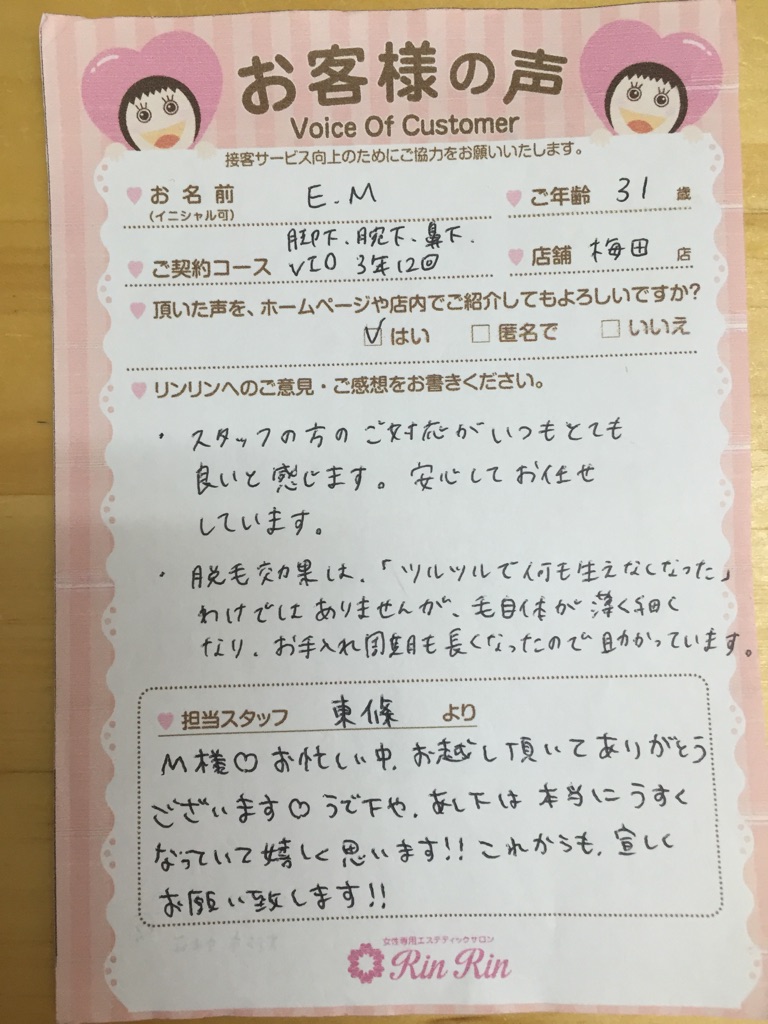 お客様の声
Voice Of Customer
接客サービス向上のためにご協力をお願いいたします。
お名前 E.M ご年齢 31 歳
(イニシャル可)
脚下、腕下、鼻下、
ご契約コース VIO 3年12回 店舗 梅田 店
頂いた声を、ホームページや店内でご紹介してもよろしいですか?
☑はい □匿名で □いいえ
リンリンへのご意見・ご感想をお書きください。
・スタッフの方のご対応がいつもとても
良いと感じます。安心してお任せ
しています。
・脱毛効果は、「ツルツルで何も生えなくなった」
わけではありませんが、毛自体が薄く細く
なり、お手入れ周期も長くなったので助かっています。
担当スタッフ 東條 より
M様♡お忙しい中、お越し頂いてありがとう
ございます♡うで下や、あし下は本当にうすく
なっていて嬉しく思います!!これからも、宜しく
お願い致します!!
女性専用エステティックサロン
Rin Rin